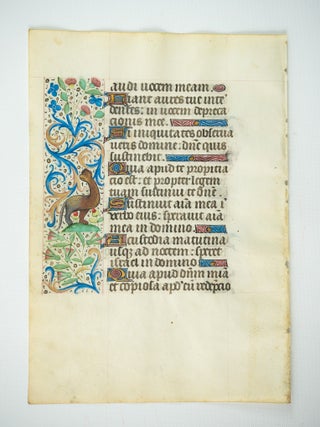 audi vocem meam
Fiant aures tue inten
dentes: in vocem depreca
cionis mee
Si iniquitates observa
veris domine: dne quis
sustinebit
Quia apud te propicia
cio est: et propter legem
tuam sustinui te dne
Sustinuit aia mea i
verbo eius: speravit aia
mea in domino
A custodia matutina
usqz ad noctem: speret
israel in domino
Quia apud dnm mia
et copiosa apd eu redepcio